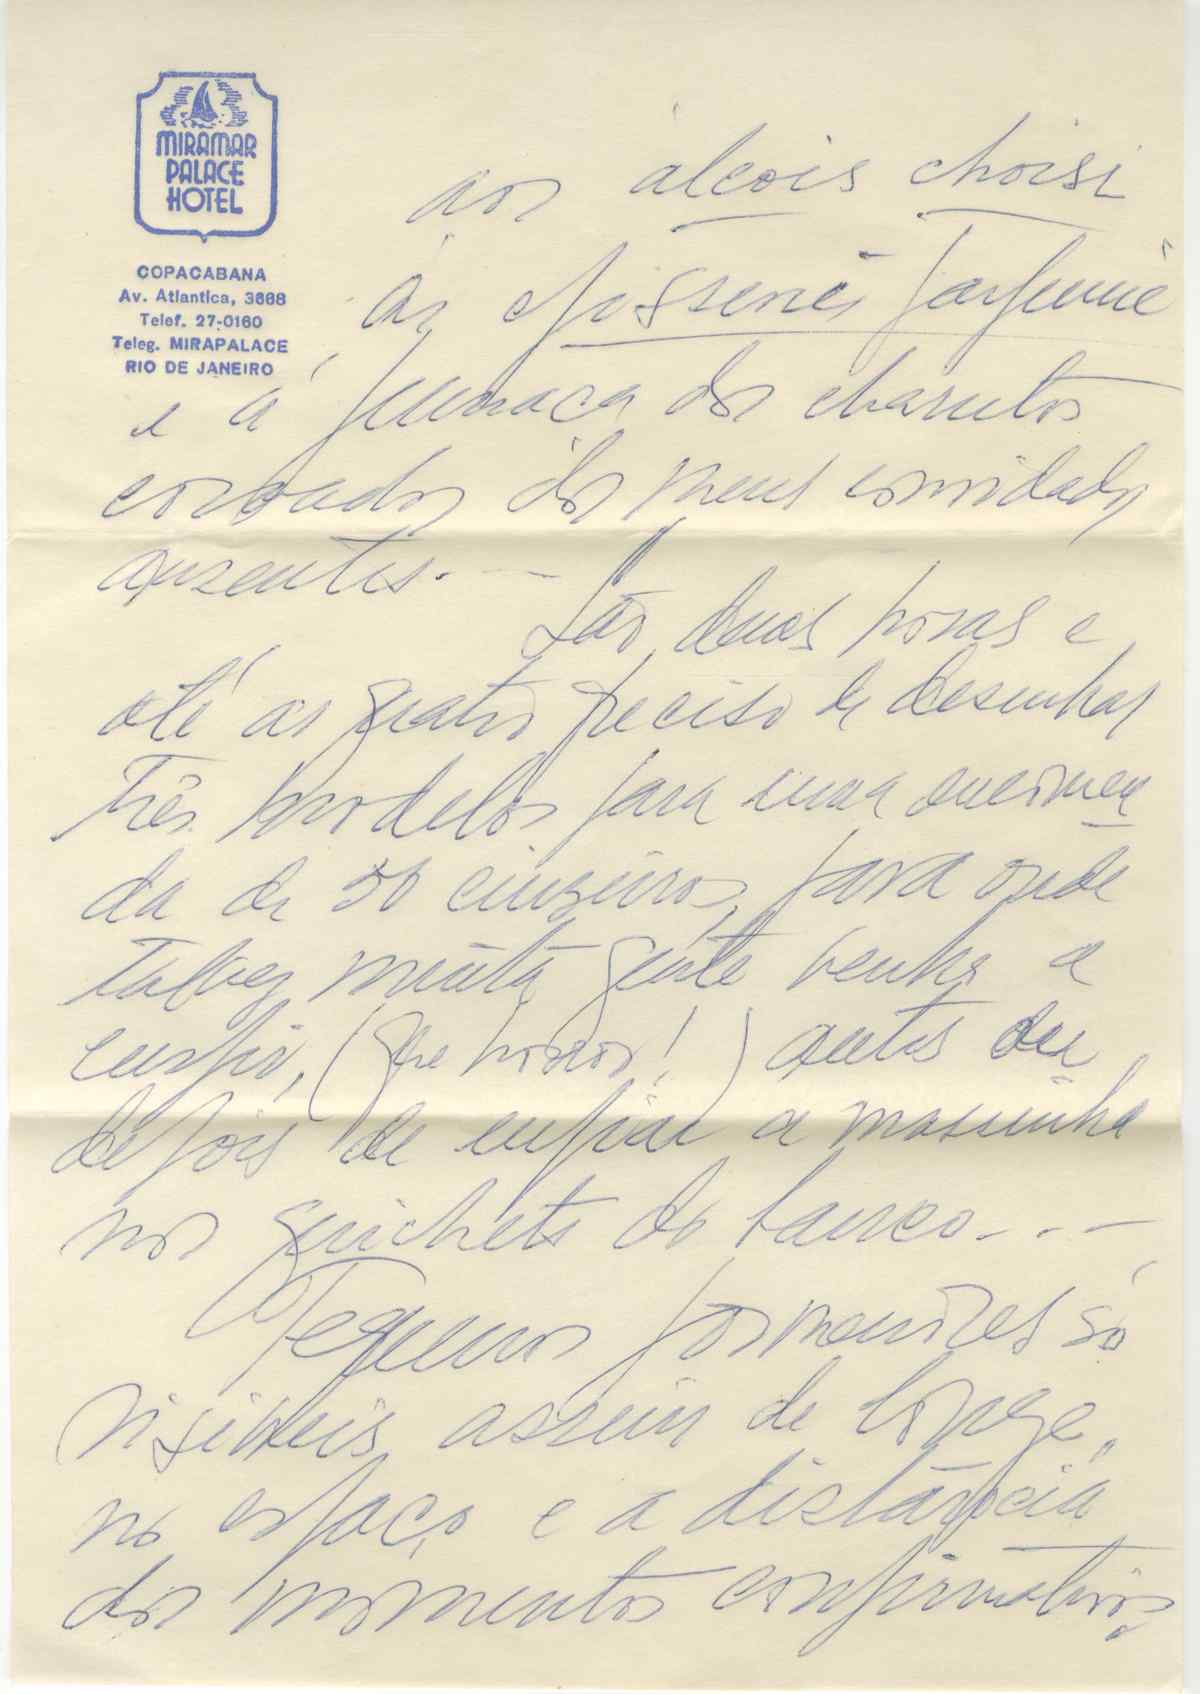 MIRAMAR
PALACE
HOTEL
COPACABANA
Av. Atlantica, 3668
Telef. 27-0160
Teleg. MIRAPALACE
RIO DE JANEIRO
aos álcois choisi
às épisseries parfumé
e à fumaça dos charutos
coroados dos meus convidados
auzentes. —
São duas horas e
até as quatro preciso de desenhar
três modelos para uma encomen
da de 50 cinzeiros, para onde
talvez muita gente venha a
cuspir, (que horror!) antes ou
depois de enfiar a massinha
nos guichets do banco...—
Pequenos pormenores só
visiveis assim de longe,
no espaço e a distância
dos momentos confirmativos,